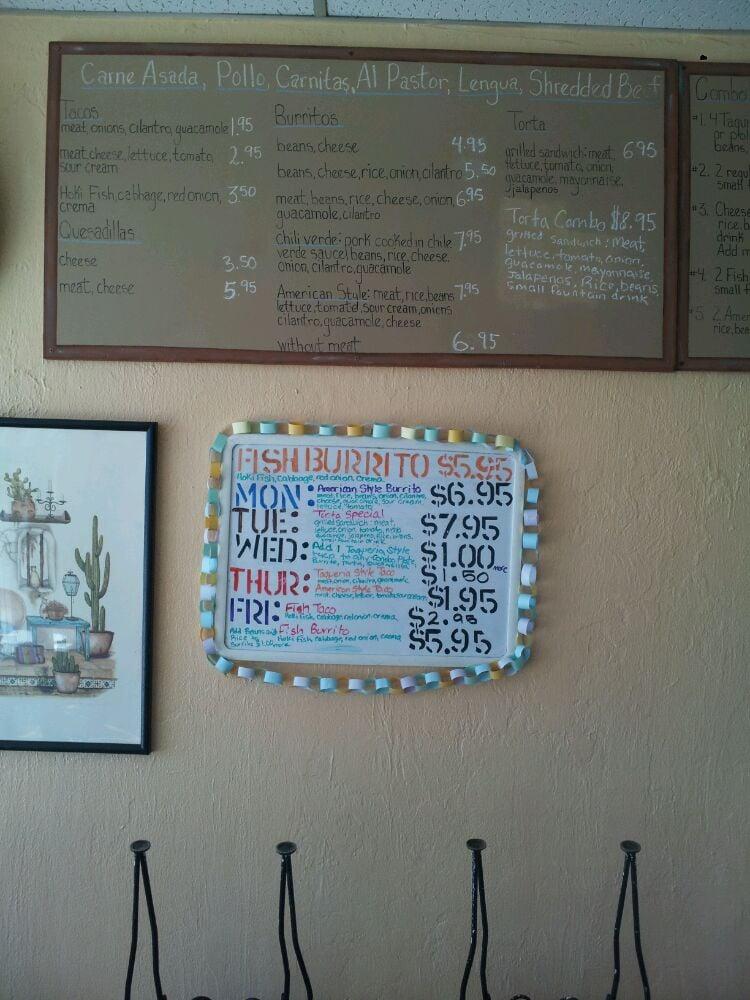 Carne Asada, Pollo, Carnitas, Al Pastor, Lengua, Shredded Beef
Tacos
meat, onions, cilantro, guacamole 1.95
meat, cheese, lettuce, tomato, 2.95
sour cream
Hoki Fish, cabbage, red onion, 3.50
crema
Quesadillas
cheese 3.50
meat, cheese 5.95
Burritos
beans, cheese 4.95
beans, cheese, rice, onion, cilantro 5.50
meat, beans, rice, cheese, onion, 6.95
guacamole, cilantro
Chili verde: pork cooked in chile 7.95
verde sauce, beans, rice, cheese,
onion, cilantro, guacamole
American Style: meat, rice, beans 7.95
lettuce, tomato, sour cream, onions
cilantro, guacamole, cheese
without meat 6.95
Torta
grilled sandwich: meat, 6.95
lettuce, tomato, onion,
guacamole, mayonnaise,
jalapenos
Torta Combo $8.95
grilled sandwich: meat,
lettuce, tomato, onion,
guacamole, mayonnaise,
Jalapenos, Rice, beans
small fountain drink
Combo
#1. 4 Taqu
beans,
#2. 2 regu
small
#3. Cheese
rice, b
drink
Add m
#4. 2 Fish
small f
#5. 2 Amer
rice, bea
FISH BURRITO $5.95
Hoki Fish, Cabbage, red onion, Crema
MON: American Style Burrito $6.95
meat, rice, beans, onion, cilantro,
cheese, guacamole, sour cream,
lettuce, tomato
TUE: Torta Special $7.95
grilled sandwich: meat,
lettuce, onion, tomato, mayo
guacamole, jalapeno, rice, beans,
WED: Add 1 Taqueria Style $1.00
taco to any Combo Plate,
Burrito, Torta, $1.50 more
THUR: Taqueria Style Taco
meat, onion, cilantro, guacamole
American Style Taco $1.95
meat, cheese, lettuce, tomato, sour cream
FRI: Fish Taco $2.95
Hoki Fish, cabbage, red onion, crema,
Add Beans and Fish Burrito $5.95
Rice to Hoki Fish, cabbage, red onion, crema
Burrito $1.00 more